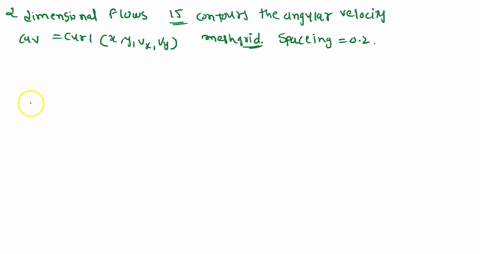 2 dimensional flows 15 contours the angular velocity
cav = curl (x, y, vx, vy) meshgrid. Spacing = 0.2.